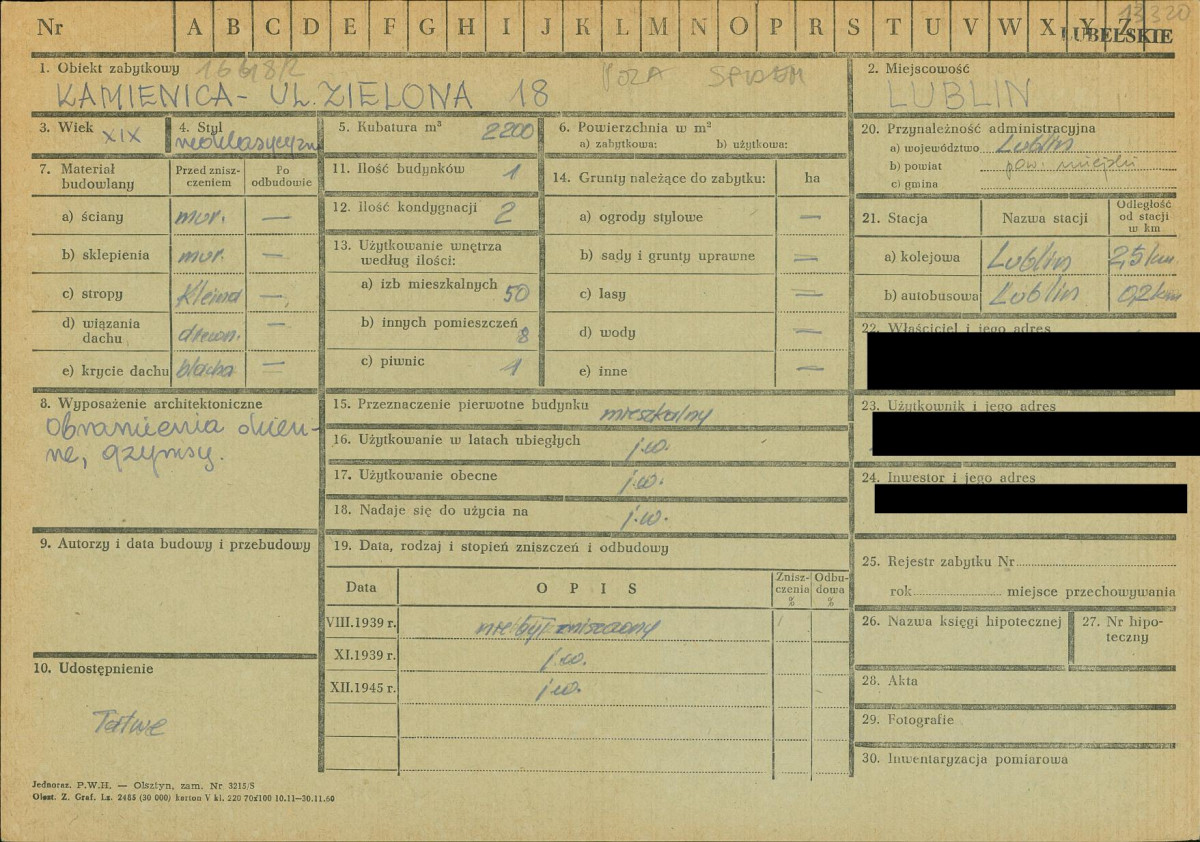 Nr A B C D E F G H I J K L M N O P R S T U V W X Y Z 13320
LUBELSKIE
1. Obiekt zabytkowy
KAMIENICA - UL. ZIELONA 18
2. Miejscowość
LUBLIN
3. Wiek XIX
4. Styl neoklasyczny
5. Kubatura m³ 2200
6. Powierzchnia w m²
a) zabytkowa: b) użytkowa:
20. Przynależność administracyjna
a) województwo Lublin
b) powiat pow. miejski
c) gmina
7. Materiał budowlany
Przed zniszczeniem
Po odbudowie
a) ściany mur. —
b) sklepienia mur. —
c) stropy Kleina —
d) wiązania dachu drewn. —
e) krycie dachu blacha —
11. Ilość budynków 1
12. Ilość kondygnacji 2
13. Użytkowanie wnętrza według ilości:
a) izb mieszkalnych 50
b) innych pomieszczeń 8
c) piwnic 1
14. Grunty należące do zabytku: ha
a) ogrody stylowe —
b) sady i grunty uprawne —
c) lasy —
d) wody —
e) inne —
21. Stacja Nazwa stacji Odległość od stacji w km
a) kolejowa Lublin 2,5 km
b) autobusowa Lublin 0,2 km
22. Właściciel i jego adres
23. Użytkownik i jego adres
24. Inwestor i jego adres
8. Wyposażenie architektoniczne
Obramienia okien-
ne, gzymsy.
15. Przeznaczenie pierwotne budynku mieszkalny
16. Użytkowanie w latach ubiegłych j.w.
17. Użytkowanie obecne j.w.
18. Nadaje się do użycia na j.w.
9. Autorzy i data budowy i przebudowy
19. Data, rodzaj i stopień zniszczeń i odbudowy
Data OPIS Zniszczenia % Odbudowa %
VIII.1939 r. nie był zniszczony
XI.1939 r. j.w.
XII.1945 r. j.w.
10. Udostępnienie
Łatwe
25. Rejestr zabytku Nr
rok miejsce przechowywania
26. Nazwa księgi hipotecznej
27. Nr hipoteczny
28. Akta
29. Fotografie
30. Inwentaryzacja pomiarowa
Jednoraz. P.W.H. — Olsztyn, zam. Nr 3215/S
Olszt. Z. Graf. Lz. 2455 (30 000) karton V kl. 220 70x100 10.11—30.11.60